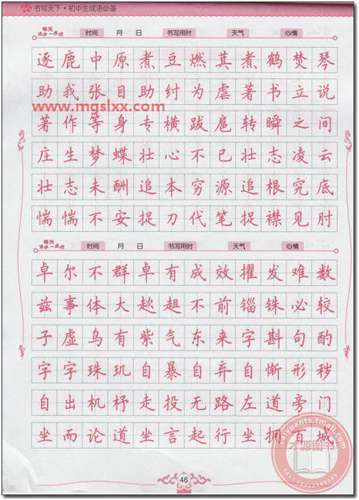 书写天下·初中生成语必备
每天进步一点点 时间 月 日 书写用时 天气 心情
逐鹿中原煮豆燃萁煮鹤焚琴
助我张目助纣为虐著书立说
www.mgslxx.com
著作等身专横跋扈转瞬之间
庄生梦蝶壮心不已壮志凌云
壮志未酬追本穷源追根究底
惴惴不安捉刀代笔捉襟见肘
每天进步一点点 时间 月 日 书写用时 天气 心情
卓尔不群卓有成效擢发难数
兹事体大趑趄不前锱铢必较
子虚乌有紫气东来字斟句酌
字字珠玑自暴自弃自惭形秽
自出机杼走投无路左道旁门
坐而论道坐言起行坐拥百城
46